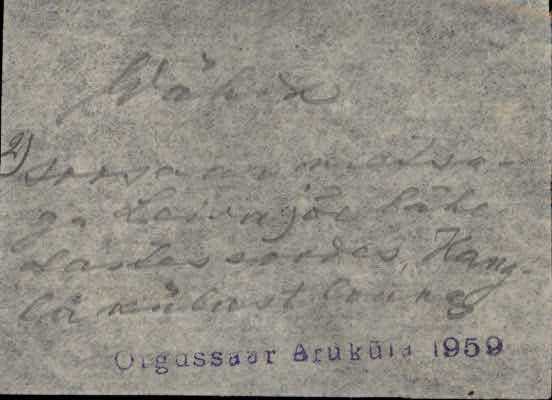 Vähix
2) soosaar metsa-
ga Leivajõe lähe
dastes soodes, Kang-
la külast louna
Orgussaar Aruküla 1959